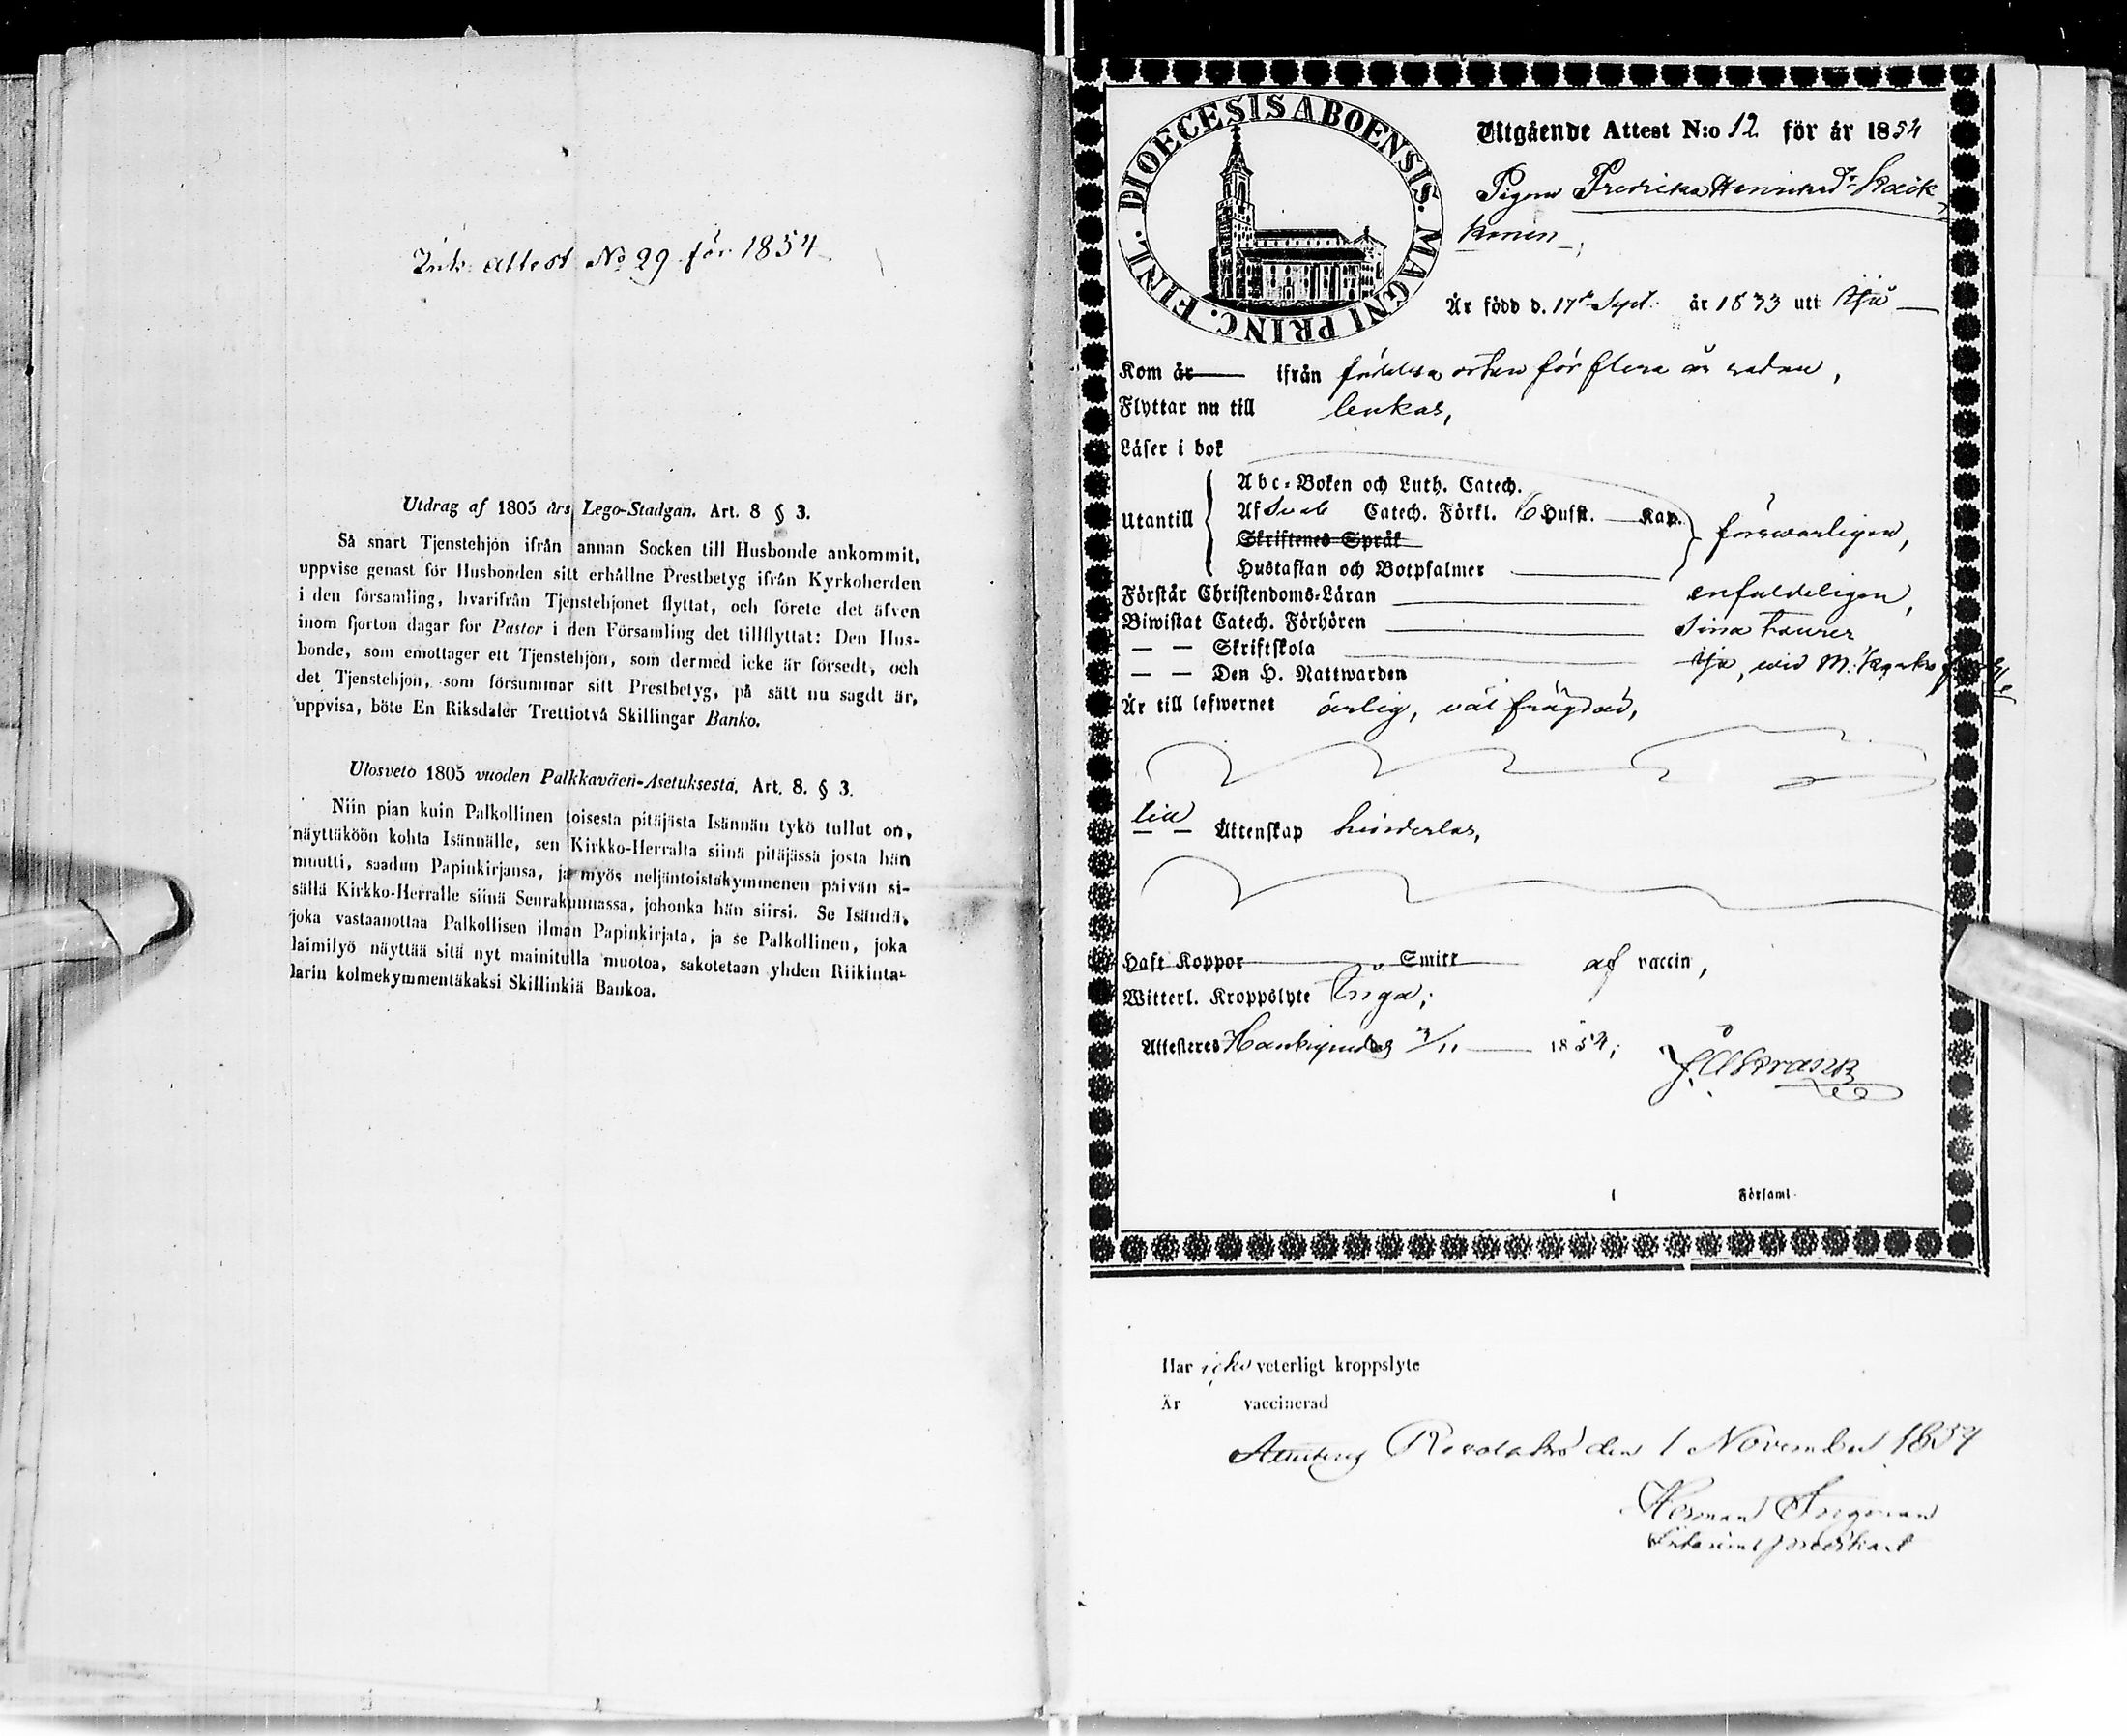 Ink. attest No 29 för 1854.
Utdrag af 1805 års Lego-Stadgan. Art. 8 § 3.
Så snart Tjenstehjon ifrån annan Socken till Husbonde ankommit,
uppvise genast för Husbonden sitt erhållne Prestbetyg ifrån Kyrkoherden
i den församling, hvarifrån Tjenstehjonet flyttat, och förete det äfven
inom fjorton dagar för Pastor i den Församling det tillflyttat: Den Hus-
bonde, som emottager ett Tjenstehjon, som dermed icke är försedt, och
det Tjenstehjon, som försummar sitt Prestbetyg, på sätt nu sagdt är,
uppvisa, böte En Riksdaler Trettiotvå Skillingar Banko.
Ulosveto 1805 vuoden Palkkaväen-Asetuksesta. Art. 8. § 3.
Niin pian kuin Palkollinen toisesta pitäjästa Isännän tykö tullut on,
näyttäköön kohta Isännälle, sen Kirkko-Herralta siinä pitäjässä josta hän
muutti, saadun Papinkirjansa, ja myös neljäntoistakymmenen päivän si-
sällä Kirkko-Herralle siinä Seurakunnassa, johonka hän siirsi. Se Isändä,
joka vastaanottaa Palkollisen ilman Papinkirjata, ja se Palkollinen, joka
laimilyö näyttää sitä nyt mainitulla muotoa, sakotetaan yhden Riikinta-
larin kolmekymmentäkaksi Skillinkiä Bankoa.
DIOECESIS ABOENSIS. MAGNI PRINC. FINL.
Utgående Attest N:o 12 för år 1854
Pigan Fredrika Henriksdr
konen
Är född d. 17de Sept. år 1833 uti
Kom år ifrån födelse orten för flera år sedan,
Flyttar nu till Leukas,
Läser i bok
Abc-Boken och Luth. Catech.
Utantill Af Sveb Catech. Förkl. 6 Hufst. Kap. försvarligen,
Skriftenes Språk
Hustaflan och Botpsalmer
Förstår Christendoms-Läran enfaldeligen,
Biwistat Catech. Förhören sina turer
— — Skriftskola
— — Den H. Nattwarden
Är till lefwernet ärlig, väl frägdad,
till Äktenskap hinderlös,
Haft Koppor Smitt af vaccin,
Witterl. Kroppslyte inga;
Attesteras 3/11 1854;
i Församl.
Har icke veterligt kroppslyte
Är vaccinerad
Revolaks den 1 November 1854
Herman